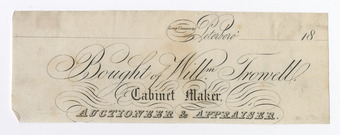 Peterboro' 18
Bought of Willm. Trowell,
Cabinet Maker,
AUCTIONEER & APPRAISER.